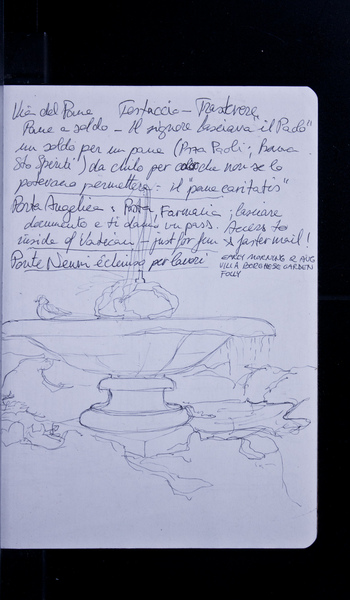 Via del Pane Testaccio - Trastevere
Pane a soldo - Il signore lasciava "il Pado"
un soldo per un pane (P.zza Paoli; Banca
Sto Spirito) da darlo per che non se lo
potevano permettere = il "pane caritatis"
Porta Angelica = Porta, Farmacia; lasciare
documento e ti danno un pass. Access to
inside of Vatican - just for fun & faster mail!
Ponte Nenni è chiuso per lavori
EARLY MORNING 12 AUG
VILLA BORGHESE GARDEN
FOLLY